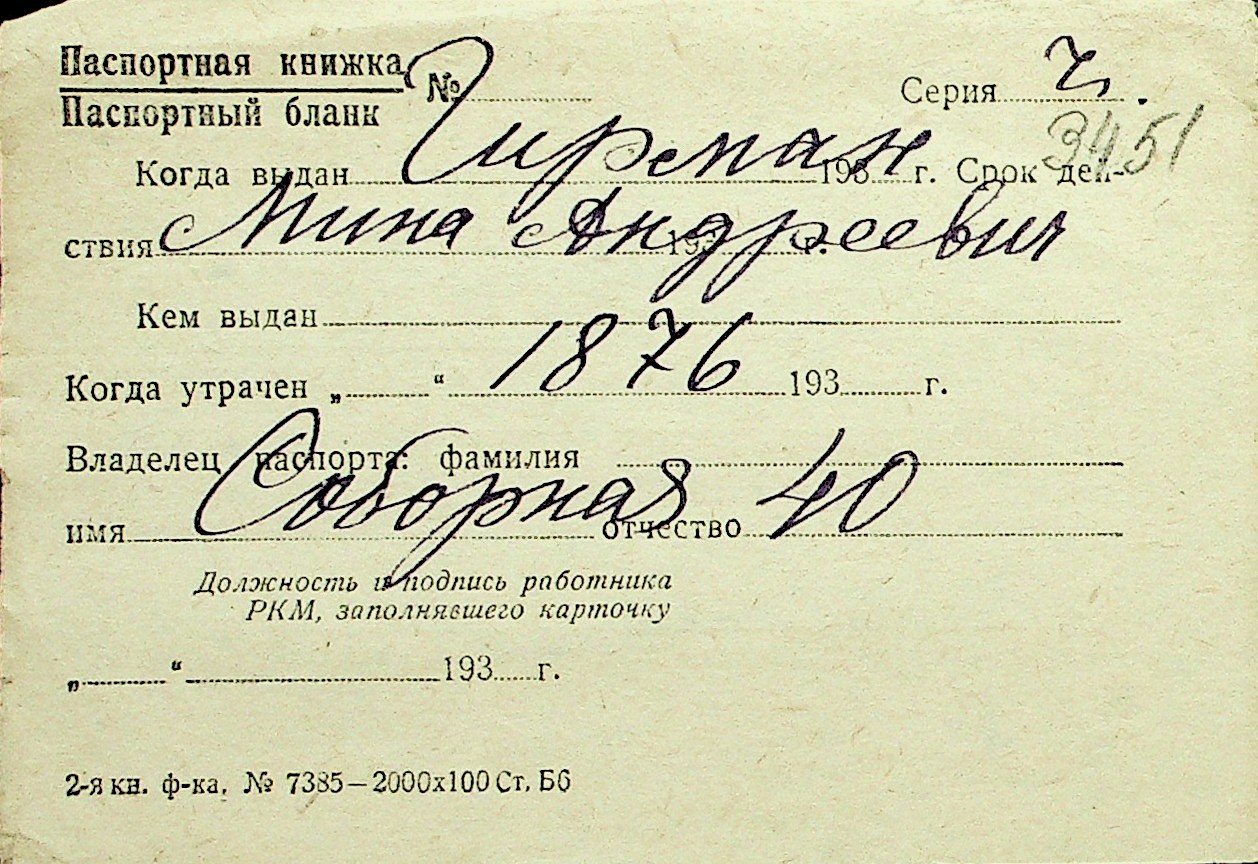 Паспортная книжка
Паспортный бланк № Серия ч.
3451
Когда выдан 193 г. Срок дей-
Гирман
ствия 193 г.
Мина Андреевич
Кем выдан
1876
Когда утрачен „ “ 193 г.
Владелец паспорта: фамилия
Соборная 40
имя отчество
Должность и подпись работника
РКМ, заполнявшего карточку
„ “ 193 г.
2-я кн. ф-ка. № 7385—2000х100 Ст. Бб